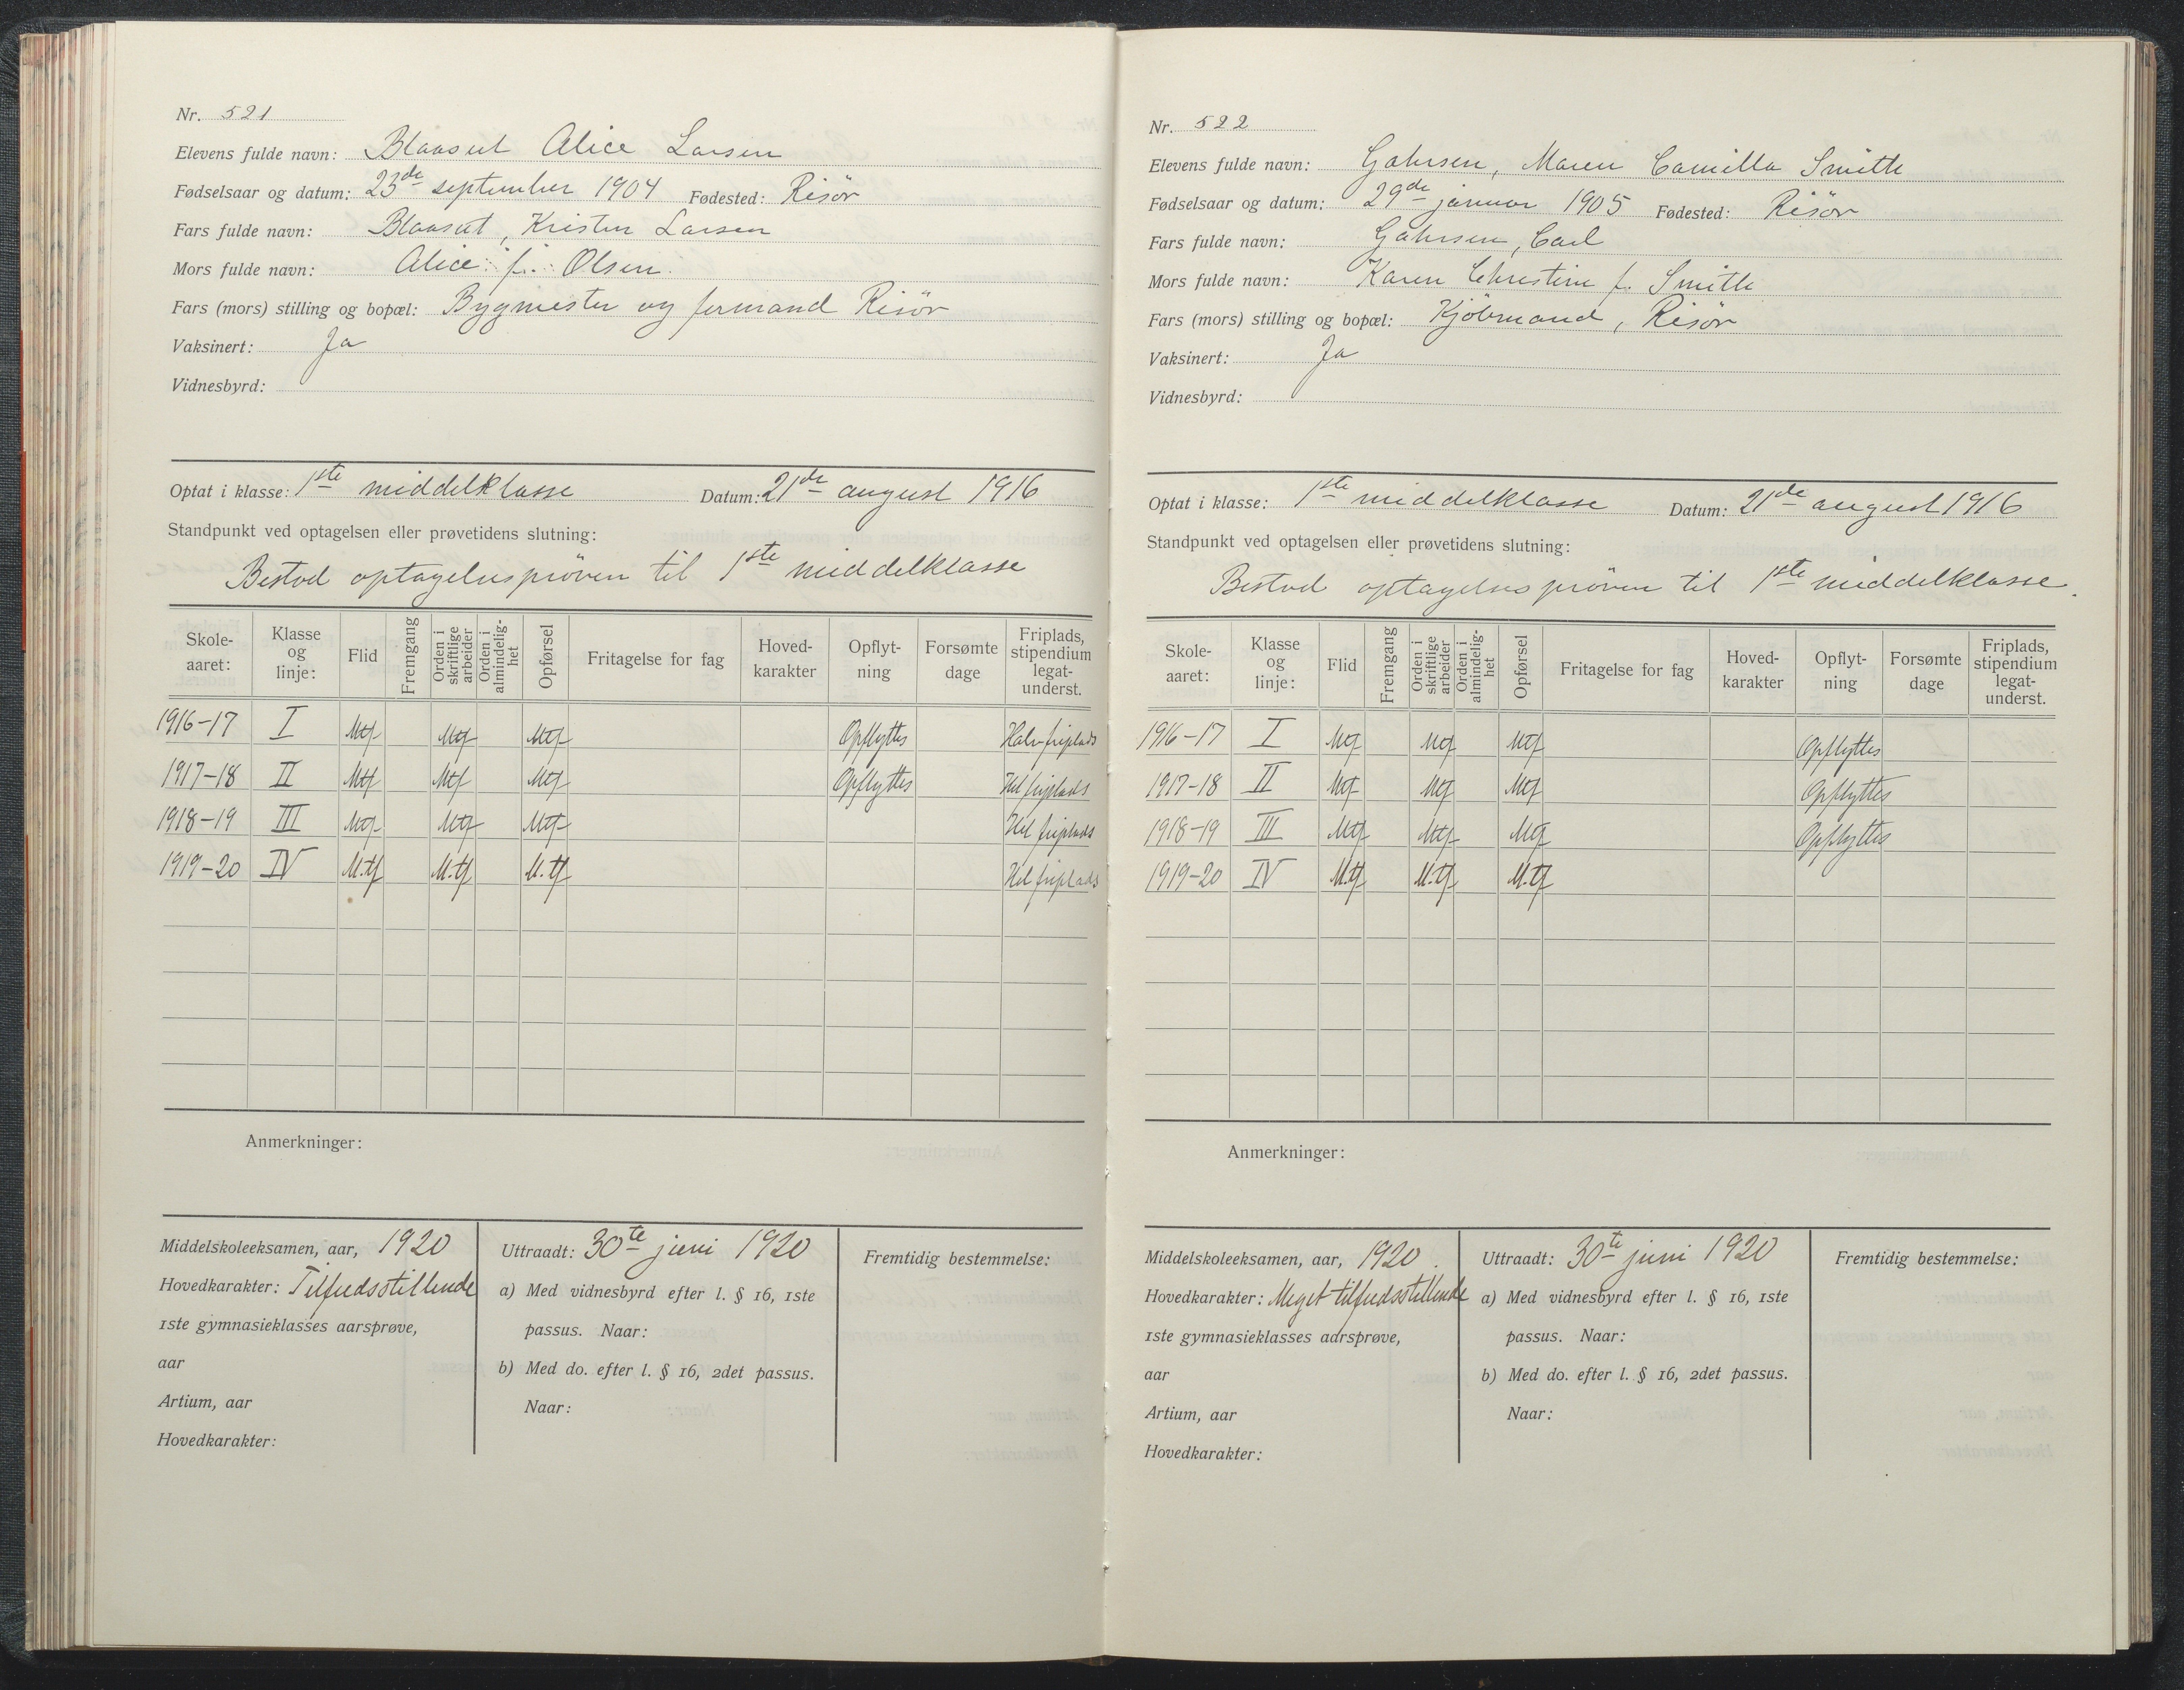 Nr. 521
Elevens fulde navn: Blaasut Alice Larsen
Fødselsaar og datum: 23de september 1904 Fødested: Risör
Fars fulde navn: Blaasut, Kristen Larsen
Mors fulde navn: Alice f. Olsen
Fars (mors) stilling og bopæl: Bygmester og formand Risör
Vaksinert: Ja
Vidnesbyrd:
Optat i klasse: 1ste middelklasse Datum: 21de august 1916
Standpunkt ved optagelsen eller prøvetidens slutning:
Bestod optagelsespröven til 1ste middelklasse
Skole-aaret: Klasse og linje: Flid Fremgang Orden i skriftlige arbeider Orden i almindelig-het Opførsel Fritagelse for fag Hoved-karakter Opflyt-ning Forsømte dage Friplads, stipendium legat-underst.
1916-17 I Mtf Mtf Mtf Opflyttes Halv friplads
1917-18 II Mtf Mtf Mtf Opflyttes Hel friplads
1918-19 III Mtf Mtf Mtf Hel friplads
1919-20 IV M.tf M.tf M.tf Hel friplads
Anmerkninger:
Middelskoleeksamen, aar, 1920
Hovedkarakter: Tilfredsstillende
1ste gymnasieklasses aarsprøve,
aar
Artium, aar
Hovedkarakter:
Uttraadt: 30te juni 1920
a) Med vidnesbyrd efter l. § 16, 1ste
passus. Naar:
b) Med do. efter l. § 16, 2det passus.
Naar:
Fremtidig bestemmelse:
Nr. 522
Elevens fulde navn: Gahrsen, Maren Camilla Smith
Fødselsaar og datum: 29de januar 1905 Fødested: Risör
Fars fulde navn: Gahrsen, Carl
Mors fulde navn: Karen Christine f. Smith
Fars (mors) stilling og bopæl: Kjöbmand, Risör
Vaksinert: Ja
Vidnesbyrd:
Optat i klasse: 1ste middelklasse Datum: 21de august 1916
Standpunkt ved optagelsen eller prøvetidens slutning:
Bestod optagelsespröven til 1ste middelklasse.
Skole-aaret: Klasse og linje: Flid Fremgang Orden i skriftlige arbeider Orden i almindelig-het Opførsel Fritagelse for fag Hoved-karakter Opflyt-ning Forsømte dage Friplads, stipendium legat-underst.
1916-17 I Mtf Mtf Mtf Opflyttes
1917-18 II Mtf Mtf Mtf Opflyttes
1918-19 III Mtf Mtf Mtf Opflyttes
1919-20 IV M.tf M.tf M.tf
Anmerkninger:
Middelskoleeksamen, aar, 1920.
Hovedkarakter: Meget tilfredsstillende
1ste gymnasieklasses aarsprøve,
aar
Artium, aar
Hovedkarakter:
Uttraadt: 30te juni 1920
a) Med vidnesbyrd efter l. § 16, 1ste
passus. Naar:
b) Med do. efter l. § 16, 2det passus.
Naar:
Fremtidig bestemmelse: